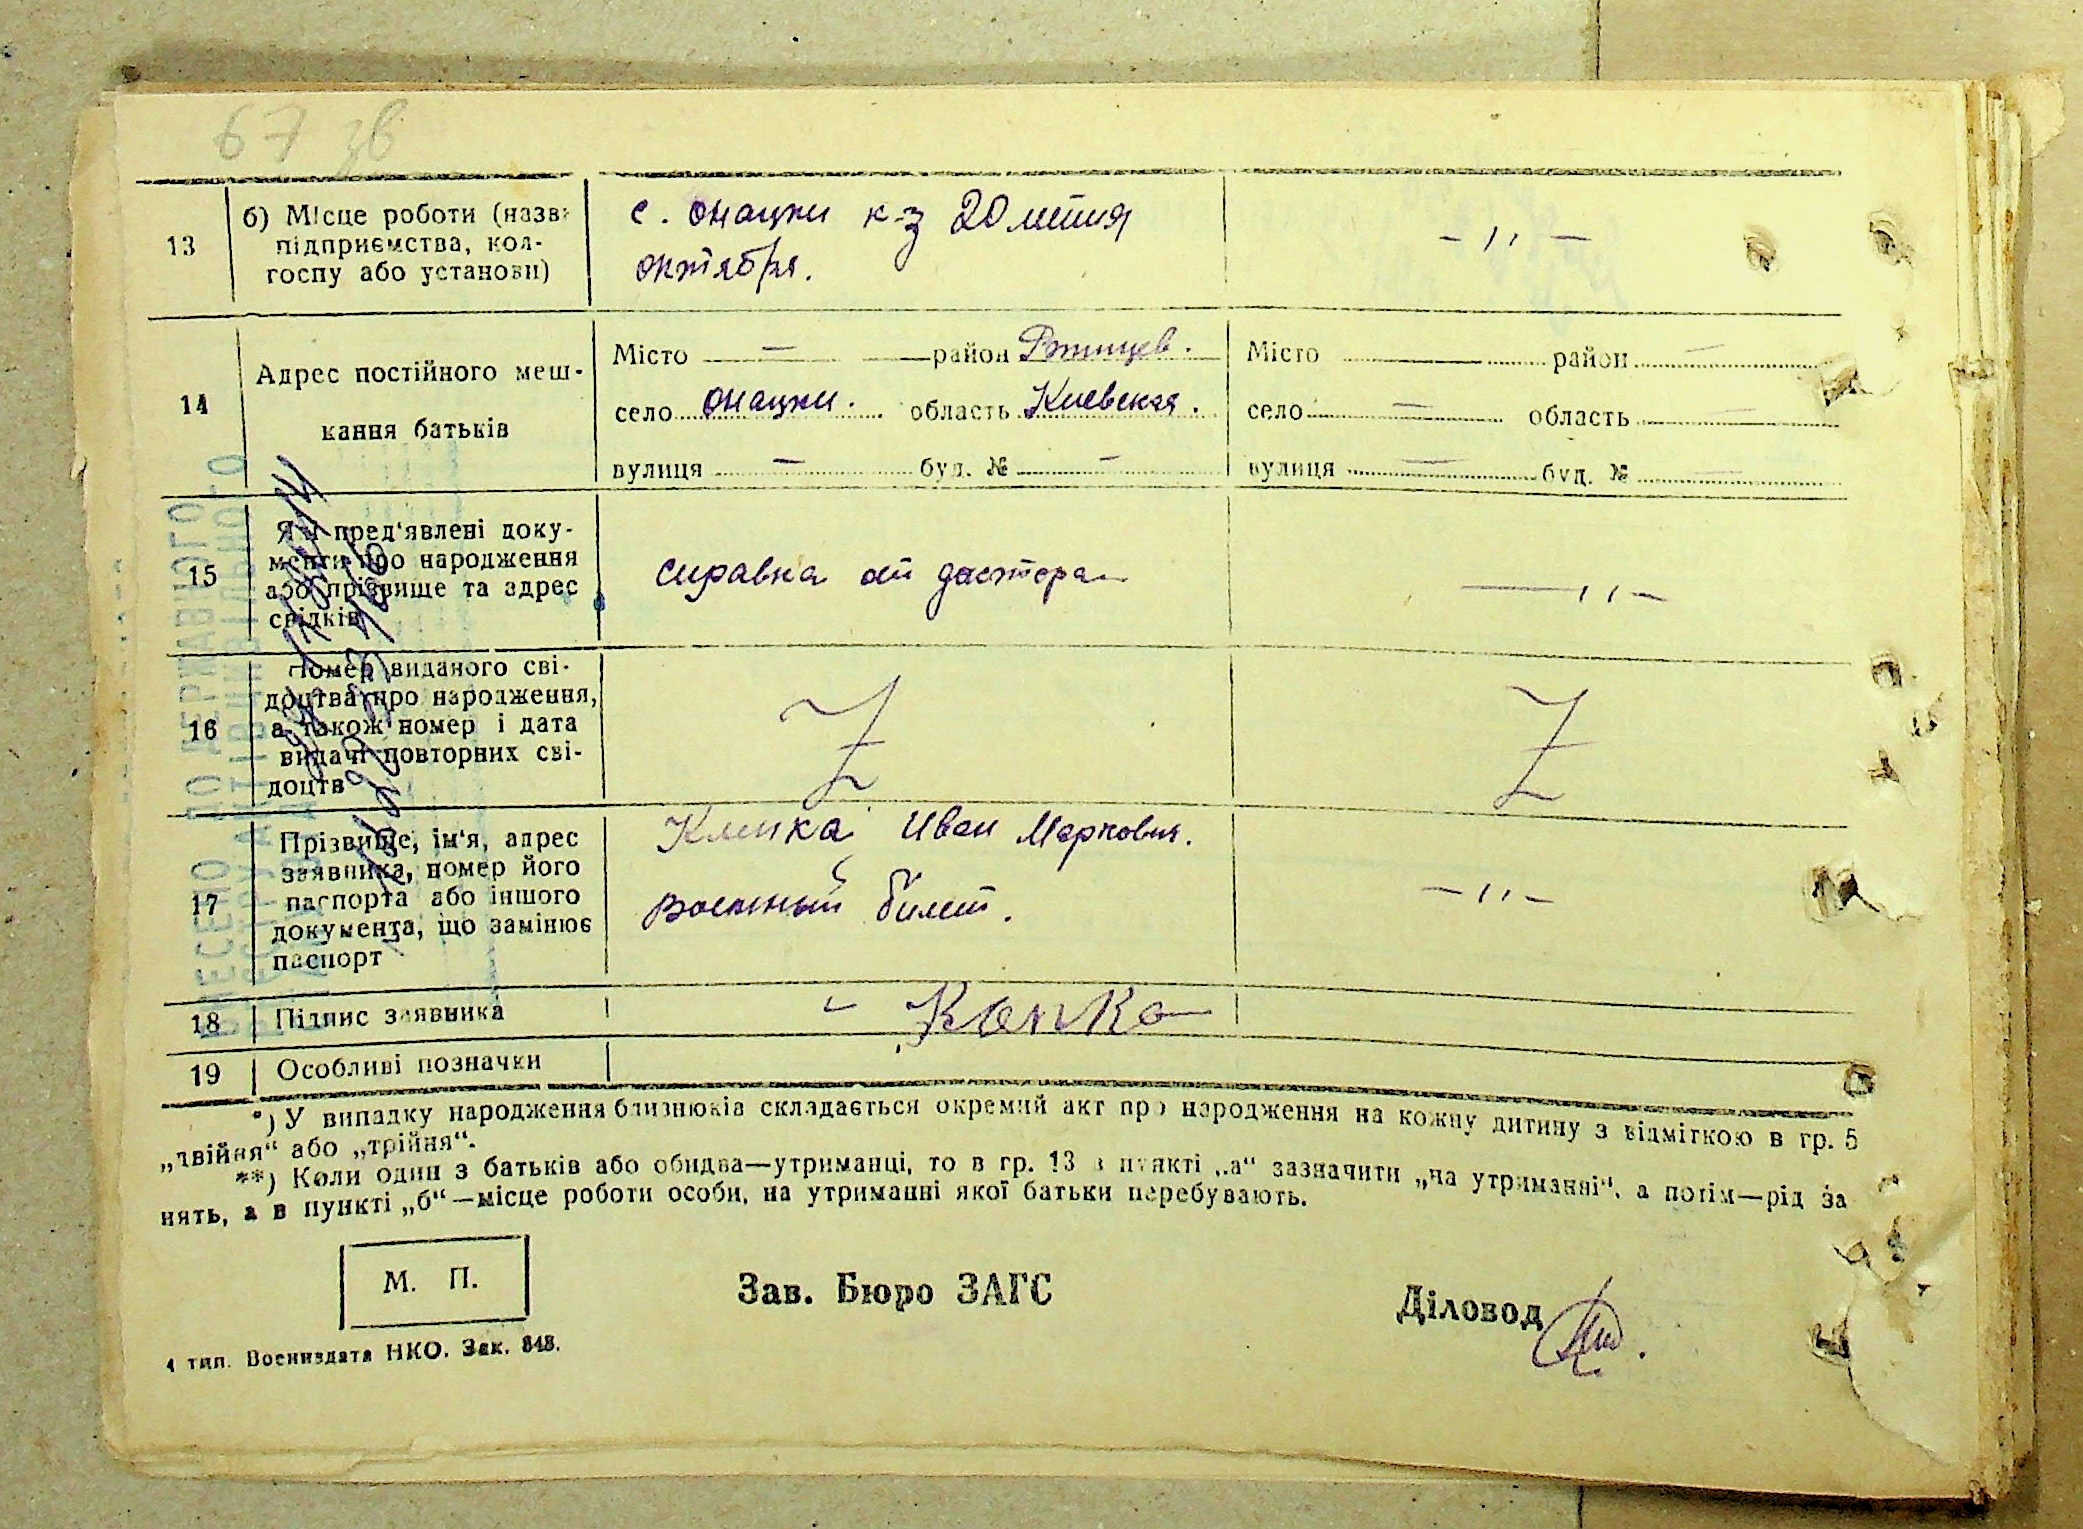 67 зв
13
б) Місце роботи (назва
підприємства, кол-
госпу або установи)
с. Онацки к-з 20 летия
октября.
– 〃 –
14
Адрес постійного меш-
кання батьків
Місто – район Ржищев.
село Онацки. область Киевская.
вулиця – буд. № –
Місто – район –
село – область –
вулиця – буд. № –
15
Які пред'явлені доку-
менти про народження
або прізвище та адрес
свідків
справка от доктора
– 〃 –
16
Номер виданого сві-
доцтва про народження,
а також номер і дата
видачі повторних сві-
доцтв
Z
Z
17
Прізвище, ім'я, адрес
заявника, номер його
паспорта або іншого
документа, що замінює
паспорт
Иван Маркович.
военный билет.
– 〃 –
18
Підпис заявника
19
Особливі позначки
*) У випадку народження близнюків складається окремий акт про народження на кожну дитину з відміткою в гр. 5
„двійня“ або „трійня“.
**) Коли один з батьків або обидва—утриманці, то в гр. 13 в пункті „а“ зазначити „на утриманні“, а потім—рід за
нять, а в пункті „б“—місце роботи особи, на утриманні якої батьки перебувають.
М. П.
Зав. Бюро ЗАГС
Діловод
4 тип. Воениздата НКО. Зак. 848.
ВНЕСЕНО ДО ДЕРЖАВНОГО